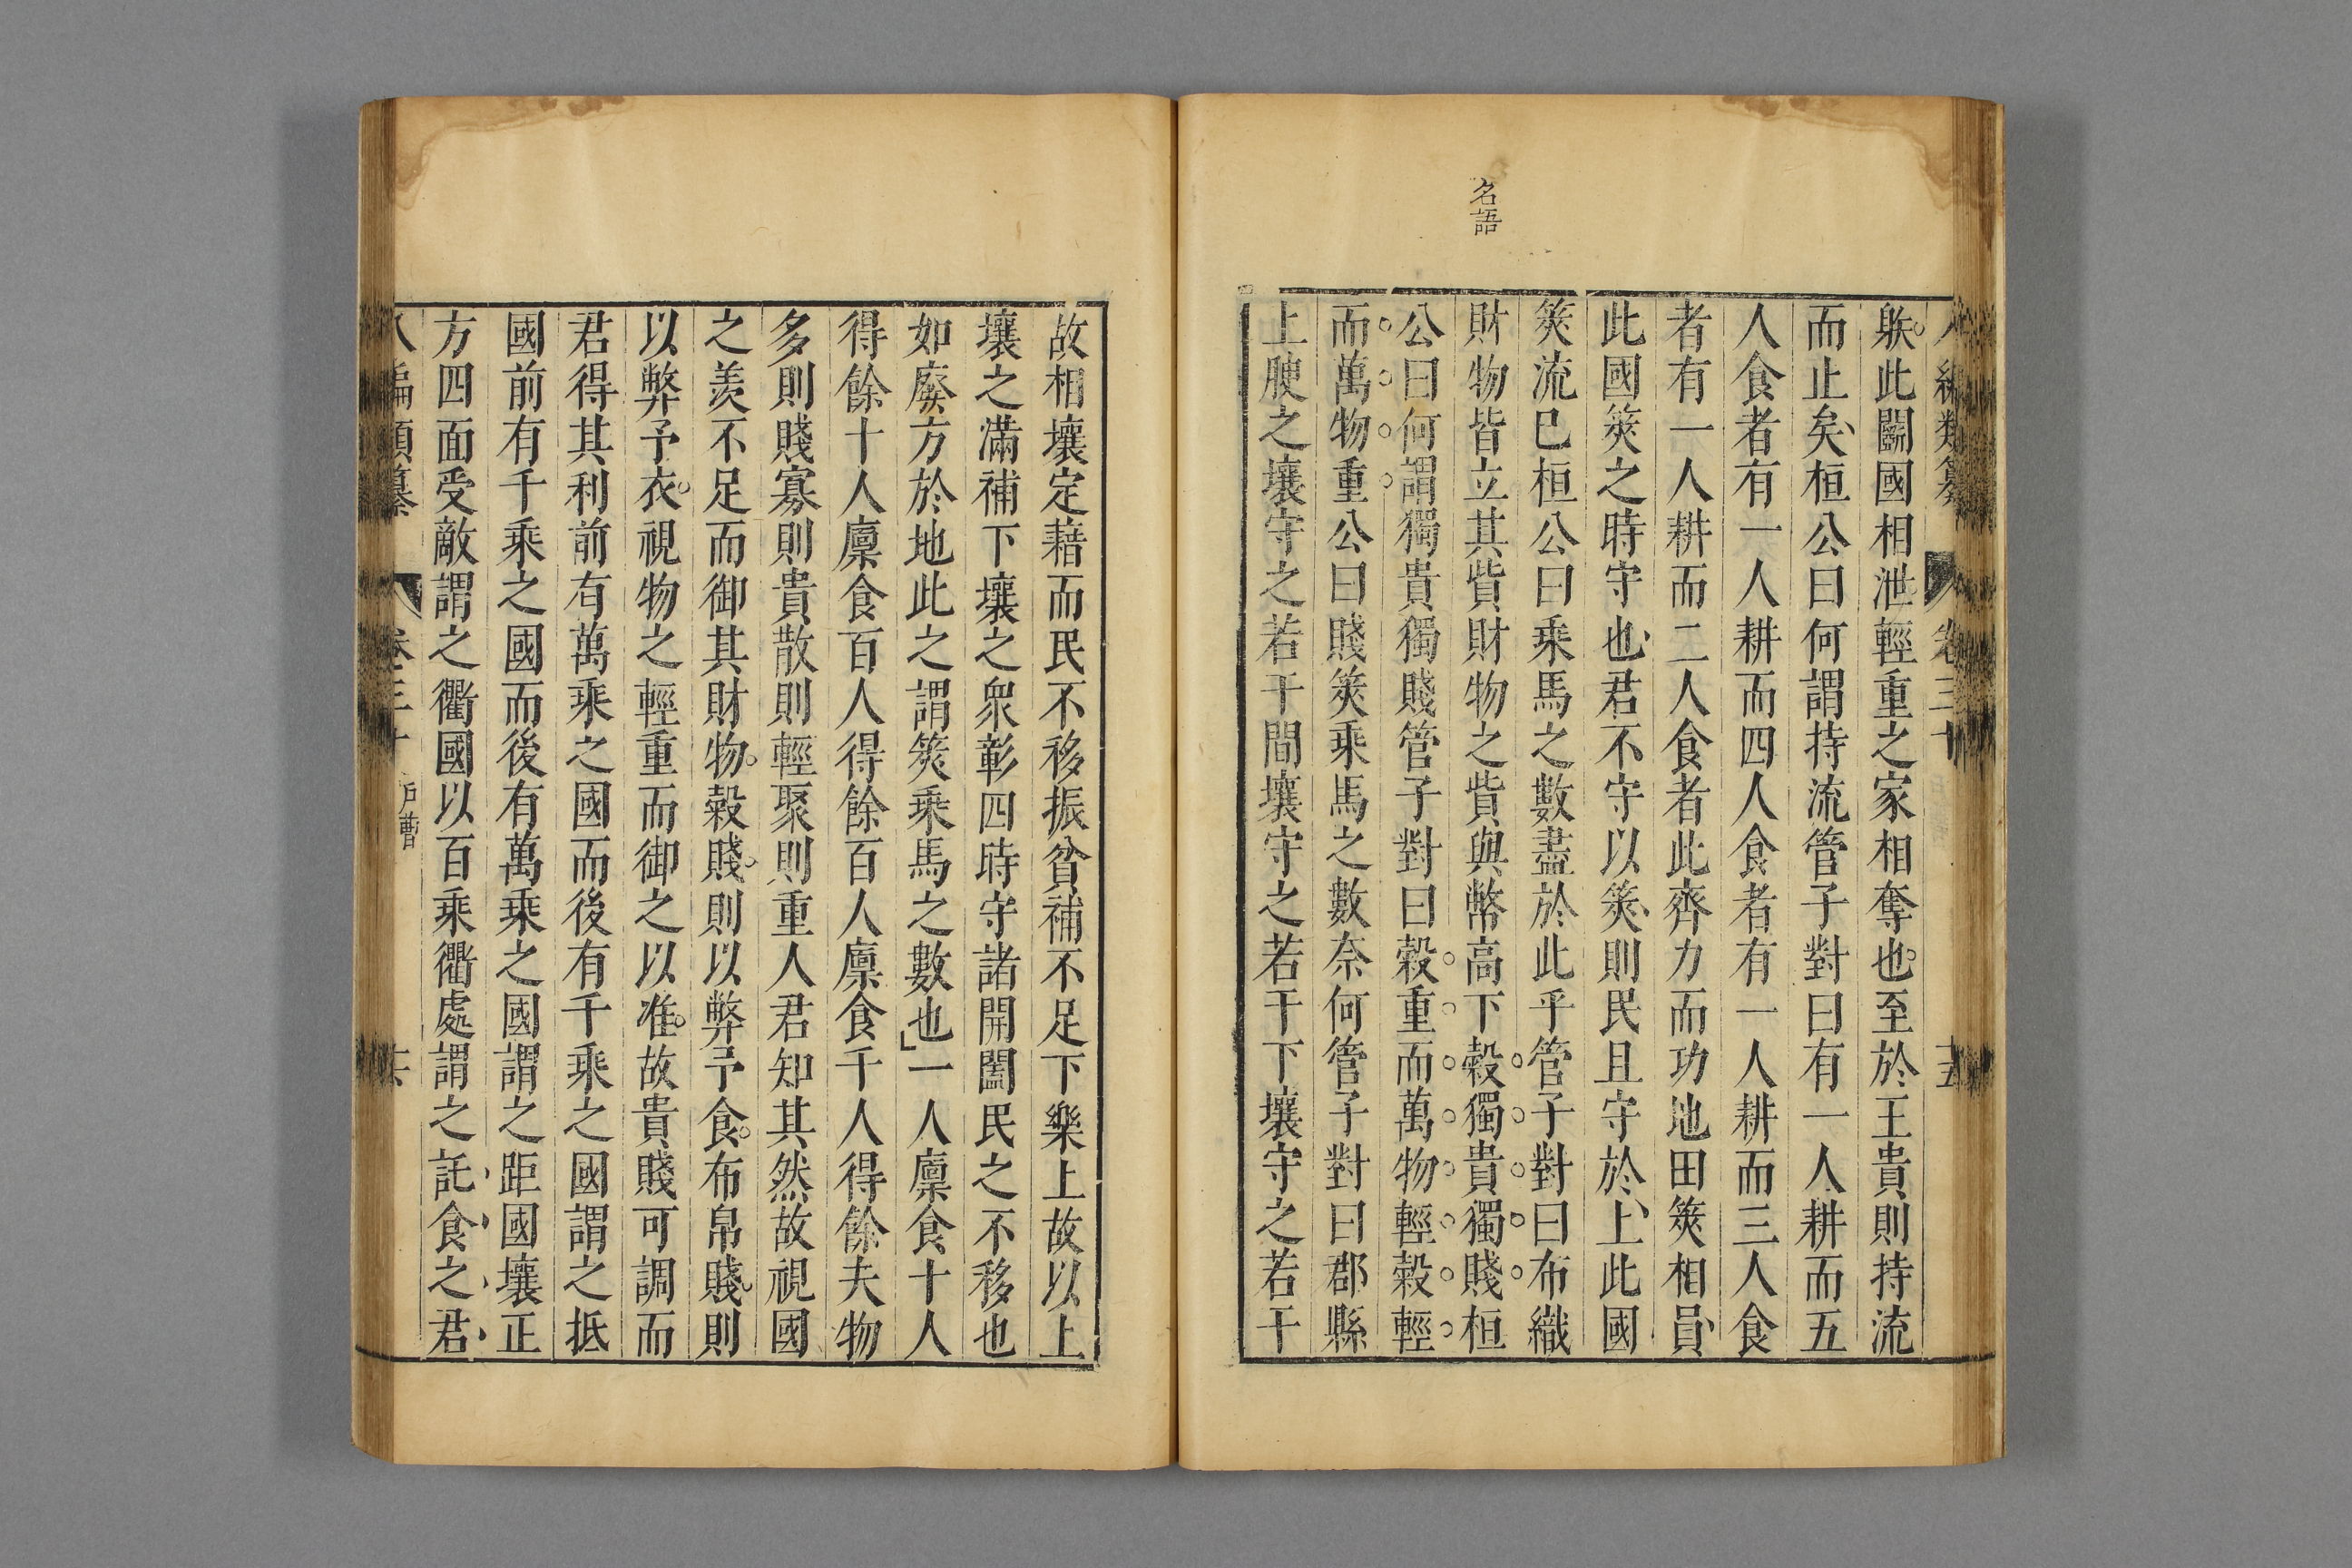 八編類纂 卷三十 十五
䠶此鬭國相泄輕重之家相奪也至於王貴則持流
而止矣桓公曰何謂持流管子對曰有一人耕而五
人食者有一人耕而四人食者有一人耕而三人食
者有一人耕而二人食者此齊力而功地田筴相員
此國筴之時守也君不守以筴則民且守於上此國
筴流已桓公曰乘馬之數盡於此乎管子對曰布織
財物皆立其貲財物之貲與幣高下穀獨貴獨賤桓
名語
公曰何謂獨貴獨賤管子對曰穀重而萬物輕穀輕
而萬物重公曰賤筴乘馬之數奈何管子對曰郡縣
上腴之壤守之若干間壤守之若干下壤守之若干
故相壤定藉而民不移振貧補不足下樂上故以上
壤之滿補下壤之衆彰四時守諸開闔民之不移也
如廢方於地此之謂筴乘馬之數也一人廩食十人
得餘十人廩食百人得餘百人廩食千人得餘夫物
多則賤寡則貴散則輕聚則重人君知其然故視國
之羨不足而御其財物穀賤則以弊予食布帛賤則
以弊予衣視物之輕重而御之以准故貴賤可調而
君得其利前有萬乘之國而後有千乘之國謂之抵
國前有千乘之國而後有萬乘之國謂之距國壤正
方四面受敵謂之衢國以百乘衢處謂之託食之君
八編類纂 卷三十 戶曹 十六